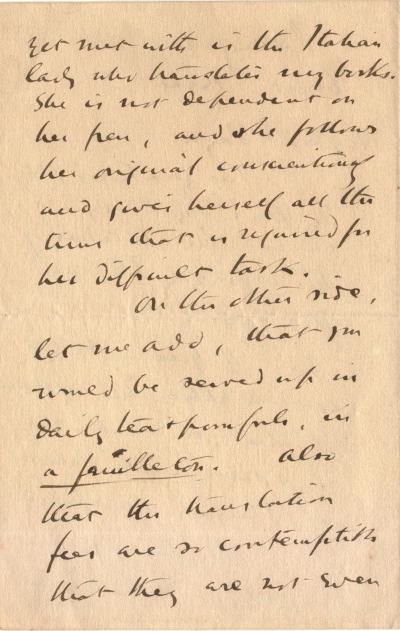 yet met with is the Italian
lady who translates my books.
She is not dependent on
her pen, and she follows
her original conscientiously
and gives herself all the
time that is required for
her difficult task.
On the other side,
let me add, that you
would be served up in
daily teaspoonfuls, in
a feuilleton. Also
that the translation
fees are so contemptible
that they are not even